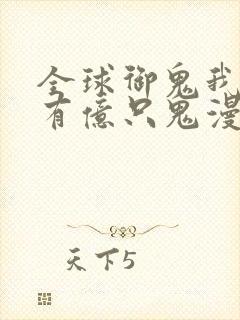 全球御鬼我
有億只鬼漫
天下5